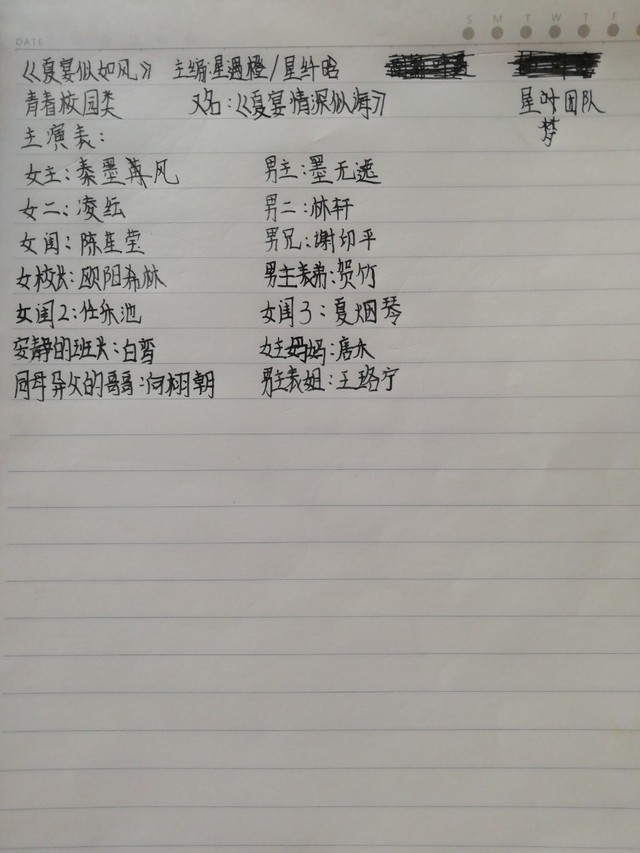 S M T W T F
DATE
《夏宴似如风》 主编:星遇橙/星纤晗
青春校园类 又名:《夏宴情深似海》 星叶团队
梦
主演表:
女主:秦墨苒风 男主:墨无逸
女二:凌纭 男二:林轩
女闺:陈星莹 男兄:谢印平
女校长:欧阳希林 男主表弟:贺竹
女闺2:仕乐池 女闺3:夏烟琴
安静的班长:白鸾 女主妈妈:唐水
同母异父的哥哥:何栩朝 男主表姐:王珞宁